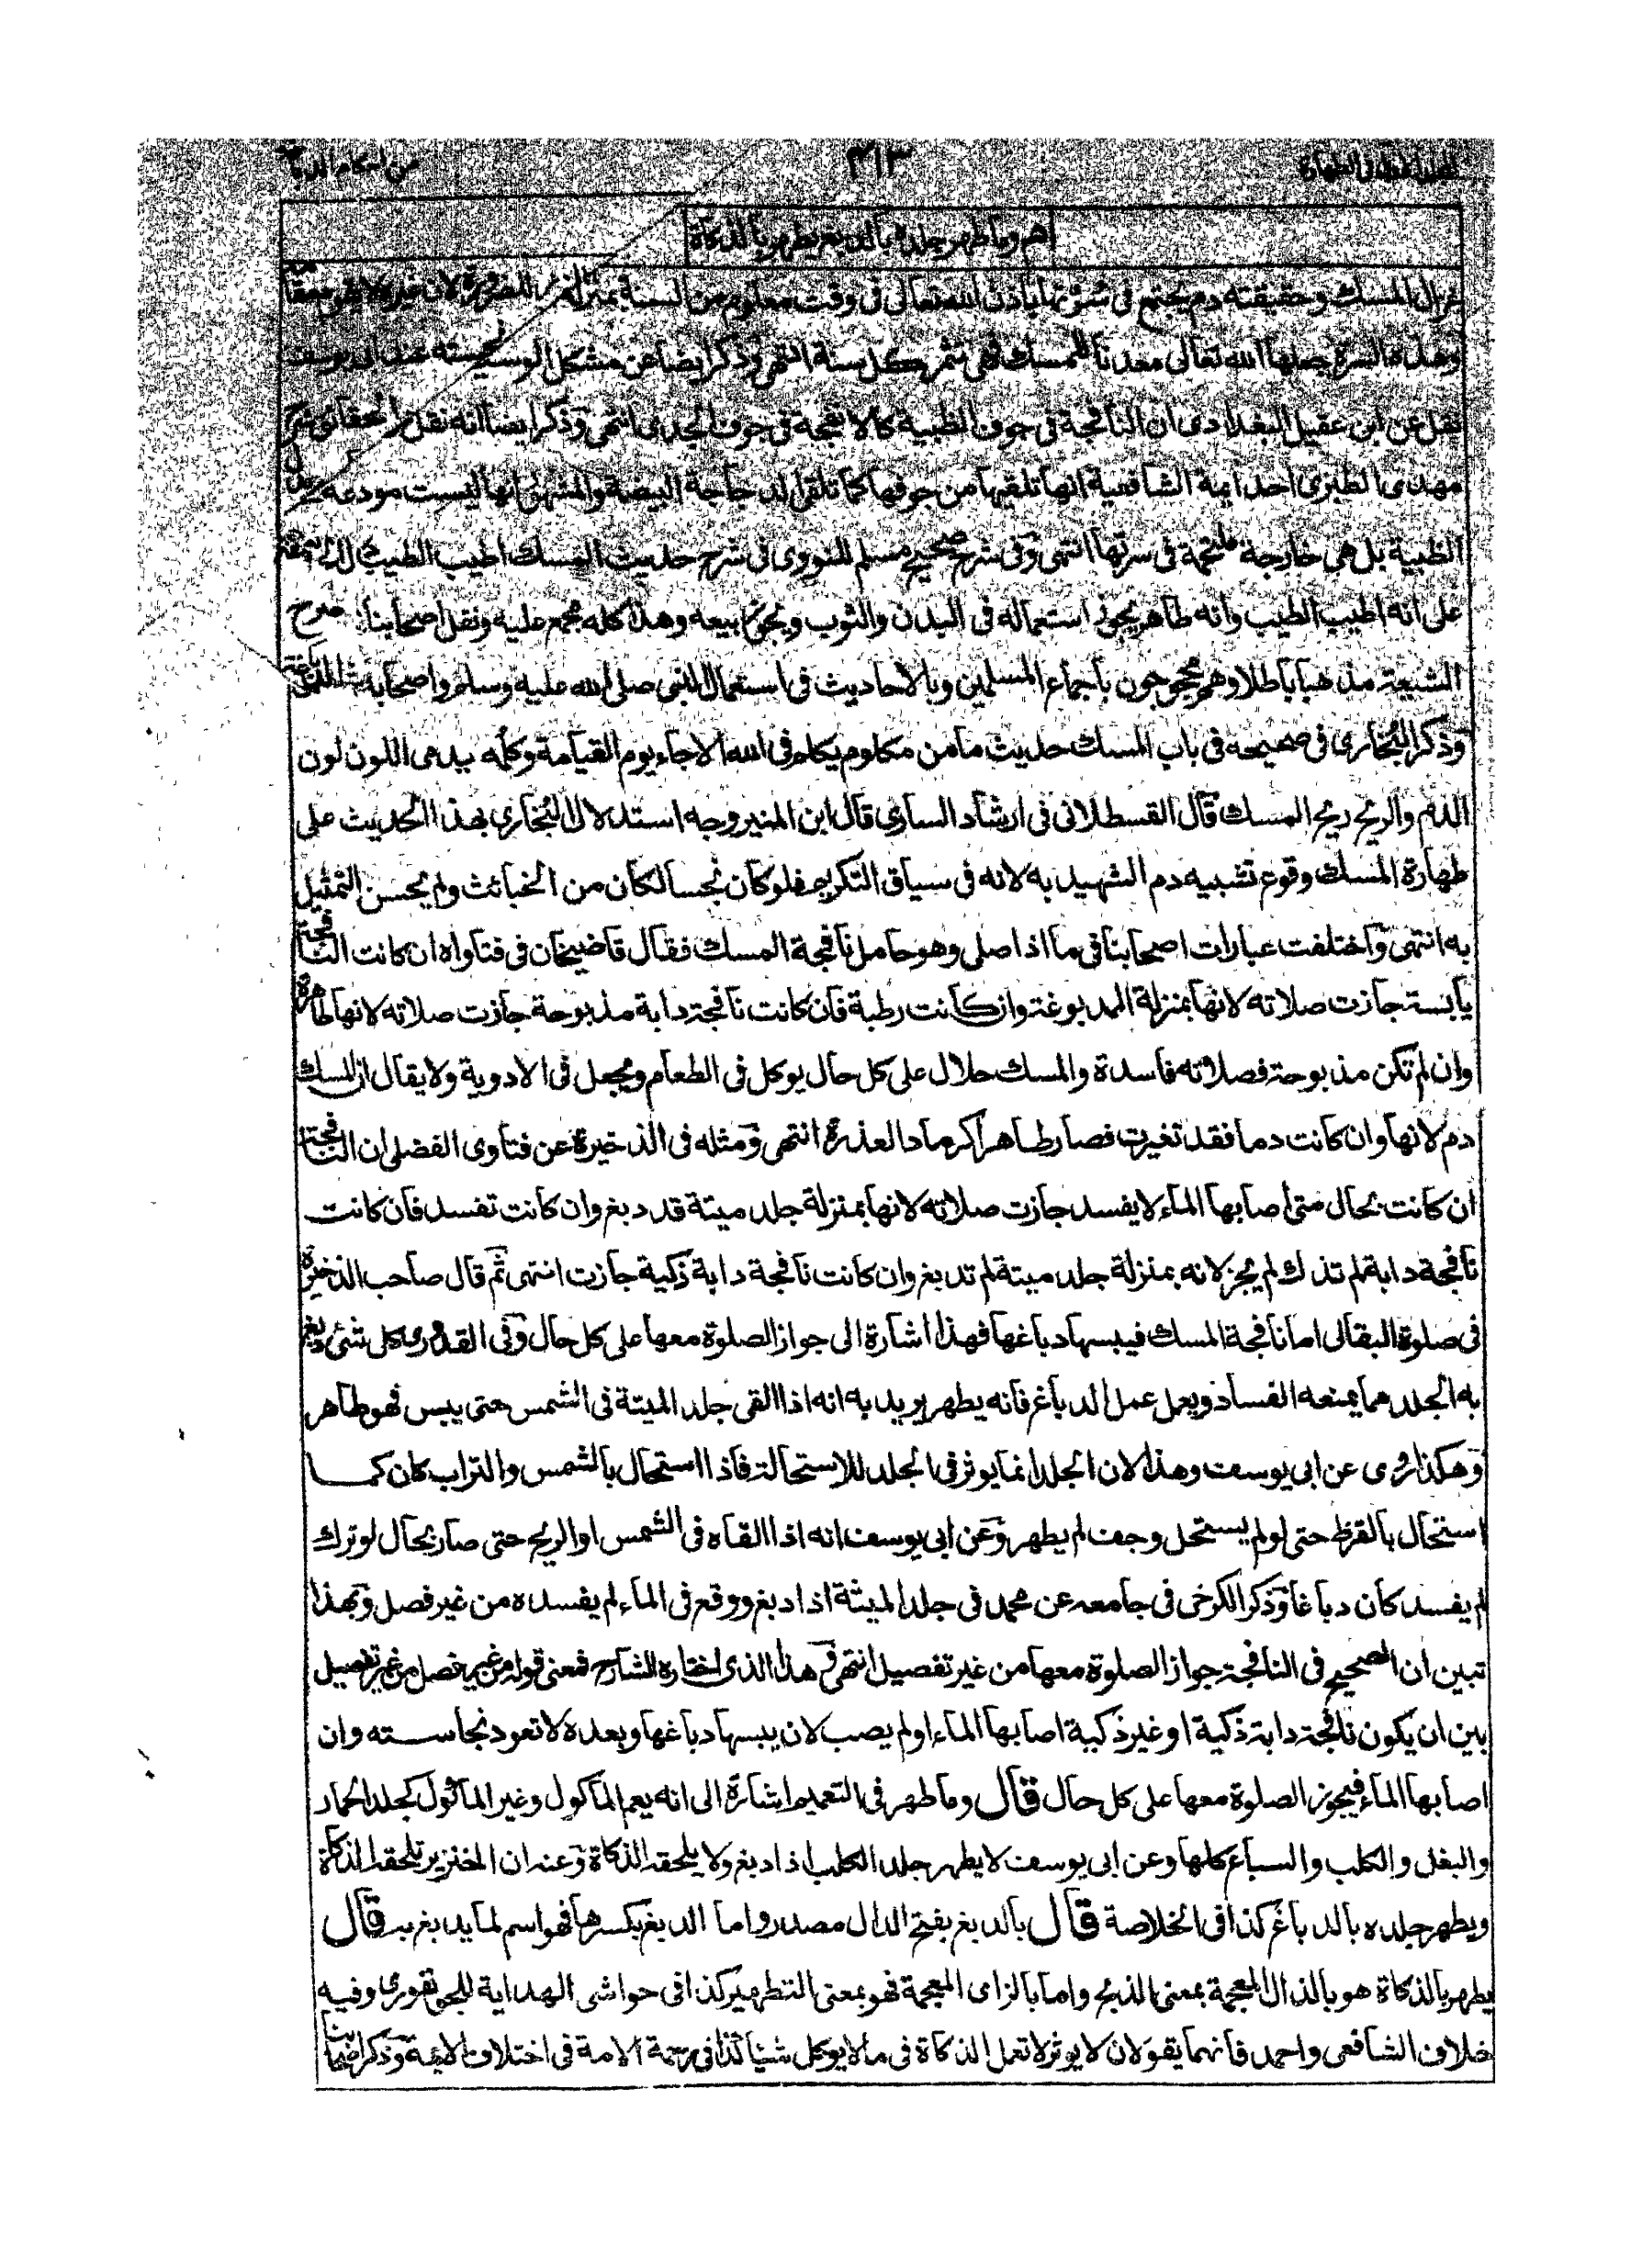 من احكام الدباغة
٤١٣
هم وما طهر جلده بالدبغ يطهر بالذكاة
غزال المسك وحقيقته دم يجتمع فى سرتها باذن الله تعالى فى وقت معلوم من السنة بمنزلة
وهذه السرة جعلها الله تعالى معدنا للمسك فهى تثمر كل سنة انتهى وذكر ايضا عن مشكل الوسيط
نقل عن ابن عقيل البغدادى ان النافجة فى جوف الظبية كالانفحة فى جوف الجدى انتهى وذكر ايضا انه نقل
مهدى الطبرى احد ايمة الشافعية انها تلقيها من جوفها كما تلقى الدجاجة البيضة والمشهور انها ليست مودعة
الظبية بل هى خارجة ملتحمة فى سرتها انتهى وفى شرح صحيح مسلم للنووى فى شرح حديث المسك اطيب الطيب
على انه اطيب الطيب وانه طاهر يجوز استعماله فى البدن والثوب ويجوز بيعه وهذا كله مجمع عليه ونقل اصحابنا
الشيعة مذهبا باطلا وهم محجوجون باجماع المسلمين وبالاحاديث فى استعمال النبى صلى الله عليه وسلم واصحابه
وذكر البخارى فى صحيحه فى باب المسك حديث ما من مكلوم يكلم فى الله الا جاء يوم القيامة وكلمه يدمى اللون لون
الدم والريح ريح المسك قال القسطلانى فى ارشاد السارى قال ابن المنير وجه استدلال البخارى بهذا الحديث على
طهارة المسك وقوع تشبيه دم الشهيد به لانه فى سياق التكريم فلو كان نجسا لكان من الخبائث ولم يحسن التمثيل
به انتهى واختلفت عبارات اصحابنا فى ما اذا صلى وهو حامل نافجة المسك فقال قاضيخان فى فتاواه ان كانت النافجة
يابسة جازت صلاته لانها بمنزلة المدبوغة وان كانت رطبة فان كانت نافجة دابة مذبوحة جازت صلاته لانها طاهرة
وان لم تكن مذبوحة فصلاته فاسدة والمسك حلال على كل حال يوكل فى الطعام ويجعل فى الادوية ولا يقال ان المسك
دم لانها وان كانت دما فقد تغيرت فصار طاهرا كرماد العذرة انتهى ومثله فى الذخيرة عن فتاوى الفضلى ان النافجة
ان كانت بحال متى اصابها الماء لا يفسد جازت صلاته لانها بمنزلة جلد ميتة قد دبغ وان كانت تفسد فان كانت
نافجة دابة لم تذك لم يجز لانه بمنزلة جلد ميتة لم تدبغ وان كانت نافجة دابة ذكية جازت انتهى ثم قال صاحب الذخيرة
فى صلوة البقالى اما نافجة المسك فيبسها دباغها فهذا اشارة الى جواز الصلوة معها على كل حال وفى القدورى كل شئ دبغ
به الجلد مما يمنعه الفساد ويعمل عمل الدباغ فانه يطهر يريد به انه اذا القى جلد الميتة فى الشمس حتى يبس فهو طاهر
وهكذا روى عن ابى يوسف وهذا لان الجلد انما يوثر فى الجلد للاستحالة فاذا استحال بالشمس والتراب كان كما
استحال بالقرظ حتى لو لم يستحل وجف لم يطهر وعن ابى يوسف انه اذا القاه فى الشمس او الريح حتى صار بحال لو ترك
لم يفسد كان دباغا وذكر الكرخى فى جامعه عن محمد فى جلد الميتة اذا دبغ ووقع فى الماء لم يفسده من غير فصل وبهذا
تبين ان الصحيح فى النافجة جواز الصلوة معها من غير تفصيل انتهى وهذا الذى اختاره الشارح فمعنى قوله من غير فصل من غير تفصيل
بين ان يكون نافجة دابة ذكية او غير ذكية اصابها الماء او لم يصب لان يبسها دباغها وبعده لا تعود نجاسته وان
اصابها الماء فيجوز الصلوة معها على كل حال قال وما طهر فى التعميم اشارة الى انه يعم الماكول وغير الماكول كجلد الحمار
والبغل والكلب والسباع كلها وعن ابى يوسف لا يطهر جلد الكلب اذا دبغ ولا يلحقه الذكاة وعنه ان الخنزير تلحقه الذكاة
ويطهر جلده بالدباغ كذا فى الخلاصة قال بالدبغ بفتح الدال مصدر واما الدبغ بكسرها فهو اسم لما يدبغ به قال
يطهر بالذكاة هو بالذال المعجمة بمعنى الذبح واما بالزاى المعجمة فهو بمعنى التطهير كذا فى حواشى الهداية للجونفورى وفيه
خلاف الشافعى واحمد فانهما يقولان لا يوثر لا تعمل الذكاة فى ما لا يوكل شيئا كذا فى رحمة الامة فى اختلاف الايمة وذكر اصحابنا